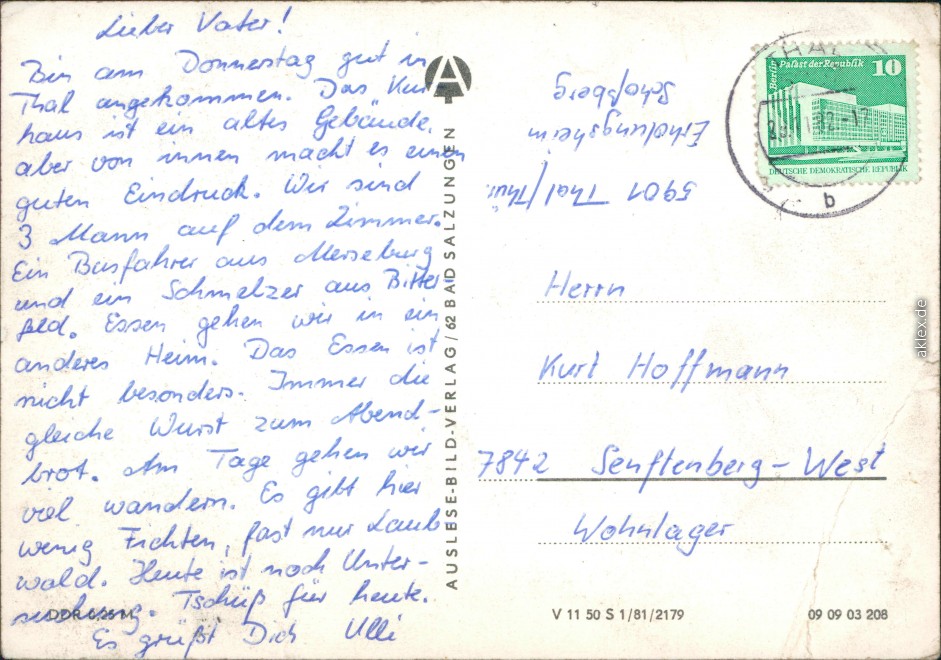 Lieber Vater!
Bin am Donnerstag gut in
Thal angekommen. Das Kur
haus ist ein altes Gebäude,
aber von innen macht es einen
guten Eindruck. Wir sind
3 Mann auf dem Zimmer.
Ein Busfahrer aus Merseburg
und ein Schmelzer aus Bitter
feld. Essen gehen wir in ein
anderes Heim. Das Essen ist
nicht besonders. Immer die
gleiche Wurst zum Abend-
brot. Am Tage gehen wir
viel wandern. Es gibt hier
wenig Fichten, fast nur Laub
wald. Heute ist noch Unter-
suchung. Tschüß für heute.
Es grüßt Dich Ulli
A
AUSLESE-BILD-VERLAG / 62 BAD SALZUNGEN
Erholungsheim
Schoßberg
5901 Thal/Thür.
Berlin Palast der Republik 10
DEUTSCHE DEMOKRATISCHE REPUBLIK
THAL
b
Herrn
Kurt Hoffmann
7842 Senftenberg-West
Wohnlager
V 11 50 S 1/81/2179
09 09 03 208
aklex.de